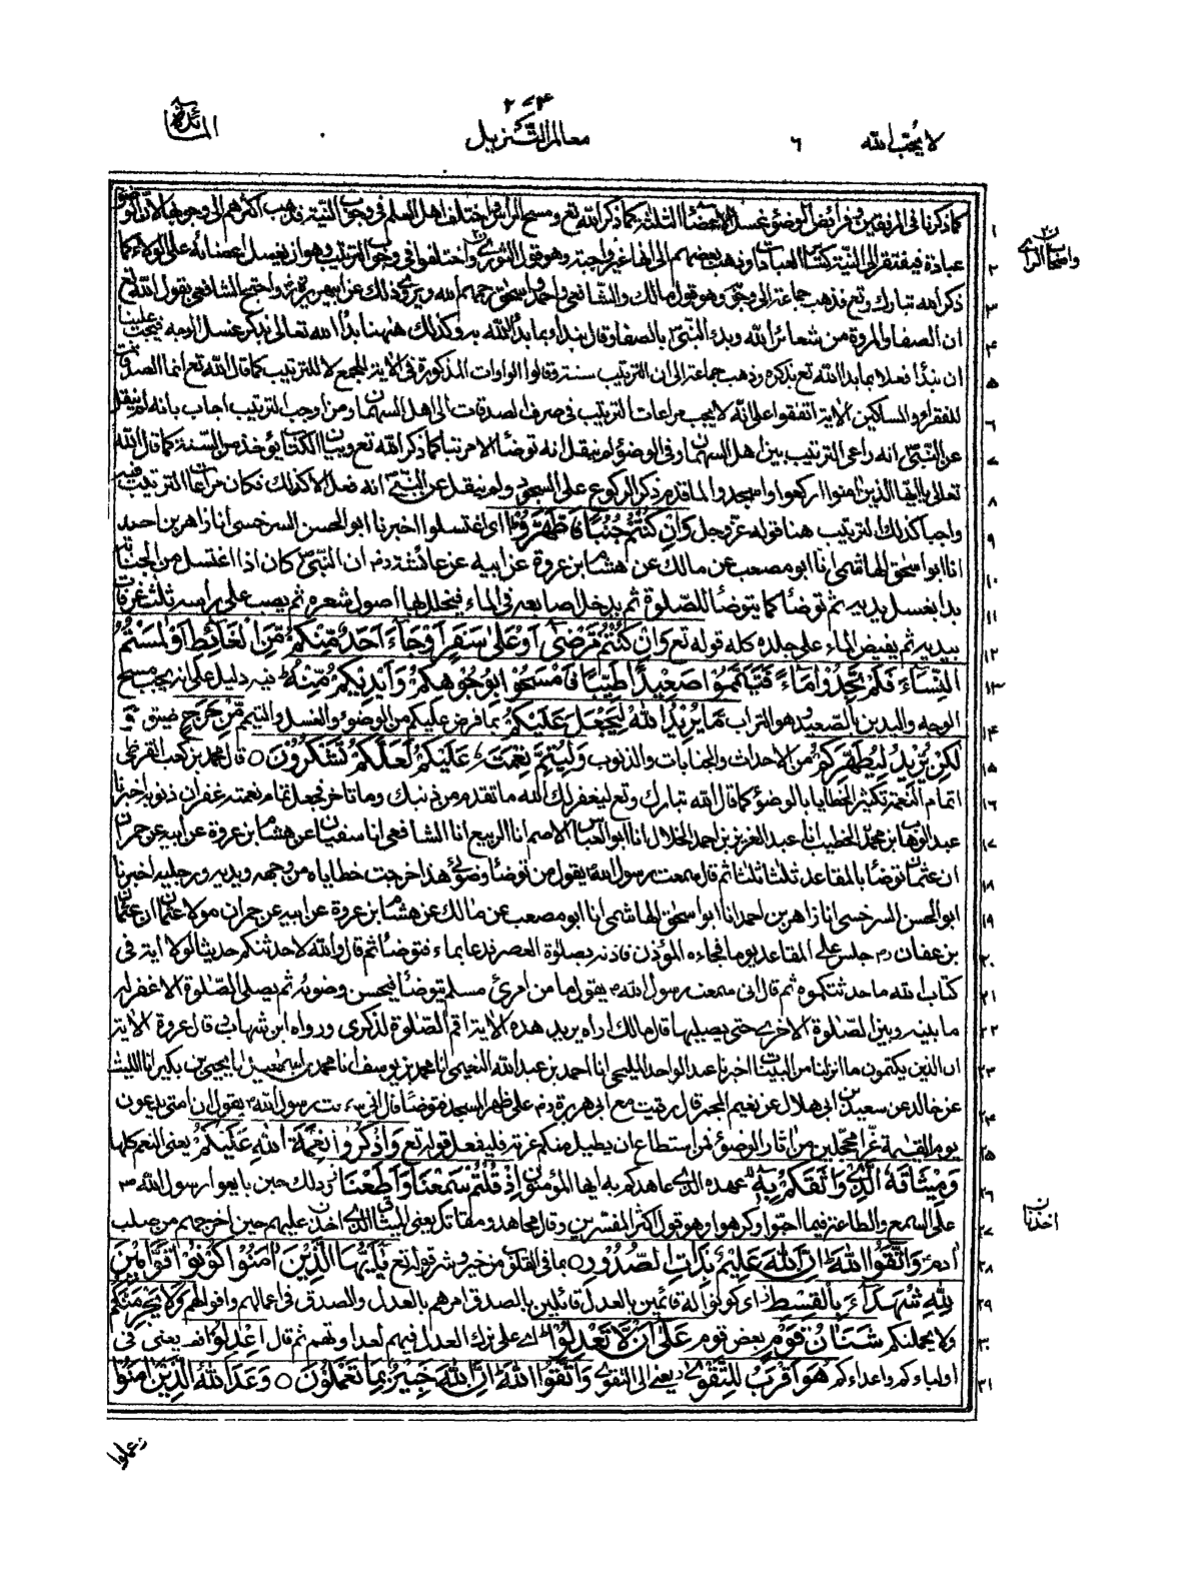 ٢٧٤
لا يحب الله ٦ معالم التنزيل المائدة
كما ذكرنا فى المرفقين وفرائض الوضوء غسل الاعضاء الثلثة كما ذكر الله تع ومسح الراس واختلف اهل العلم فى وجوب النية فذهب اكثرهم الى وجوبها لان الوضوء
عبادة فيفتقر الى النية كسائر العبادات وذهب بعضهم الى انها غير واجبة وهو قول الثورى واختلفوا فى وجوب الترتيب وهو ان يغسل اعضائه على الولاء كما
ذكر الله تبارك وتع فذهب جماعة الى وجوبه وهو قول مالك والشافعى واحمد واسحق رحمهم الله ويروى ذلك عن ابى هريرة رض واحتج الشافعى بقول الله تع
ان الصفا والمروة من شعائر الله وبدء النبى ص بالصفا وقال نبداء بما بدأ الله به وكذلك ههنا بدأ الله تعالى بذكر غسل الوجه فيجب علينا
ان نبدأ فعلا بما بدأ الله تع بذكره وذهب جماعة الى ان الترتيب سنة وقالوا الواوات المذكورة فى الاية للجمع لا للترتيب كما قال الله تع انما الصدقات
للفقراء والمساكين الاية اتفقوا على انه لا يجب مراعات الترتيب فى صرف الصدقات الى اهل السهمان ومن اوجب الترتيب اجاب بانه لم ينقل
عن النبى ص انه راعى الترتيب بين اهل السهمان وفى الوضوء لم ينقل انه توضأ الا مرتبا كما ذكر الله تع وبيان الكتاب يوخذ من السنة كما قال الله
تعالى يا ايها الذين امنوا اركعوا واسجدوا لما قدم ذكر الركوع على السجود ولم ينقل عن النبى ص انه فعل الا كذلك فكان مراعاة الترتيب فيه
واجبا كذلك الترتيب هنا قوله عز وجل وَاِنْ كُنْتُمْ جُنُبًا فَاطَّهَّرُوْا اى اغتسلوا اخبرنا ابو الحسن السرخسى انا زاهر بن احمد
انا ابو اسحق الهاشمى انا ابو مصعب عن مالك عن هشام بن عروة عن ابيه عن عائشة رض ان النبى ص كان اذا اغتسل من الجنابة
بدا بغسل يديه ثم توضأ كما يتوضأ للصلوة ثم يدخل اصابعه فى الماء فيخلل بها اصول شعره ثم يصب على راسه ثلث غرفات
بيديه ثم يفيض الماء على جلده كله قوله تع وَاِنْ كُنْتُمْ مَّرْضٰى اَوْ عَلٰى سَفَرٍ اَوْ جَآءَ اَحَدٌ مِّنْكُمْ مِّنَ الْغَآئِطِ اَوْ لٰمَسْتُمُ
النِّسَآءَ فَلَمْ تَجِدُوْا مَآءً فَتَيَمَّمُوْا صَعِيْدًا طَيِّبًا فَامْسَحُوْا بِوُجُوْهِكُمْ وَاَيْدِيْكُمْ مِّنْهُ فيه دليل على انه يجب مسح
الوجه واليدين بالصعيد وهو التراب مَا يُرِيْدُ اللّٰهُ لِيَجْعَلَ عَلَيْكُمْ بما فرض عليكم من الوضوء والغسل والتيمم مِّنْ حَرَجٍ ضيق وَّ
لٰكِنْ يُّرِيْدُ لِيُطَهِّرَكُمْ من الاحداث والجنابات والذنوب وَلِيُتِمَّ نِعْمَتَهٗ عَلَيْكُمْ لَعَلَّكُمْ تَشْكُرُوْنَ ○ قال محمد بن كعب القرظى
اتمام النعمة تكفير الخطايا بالوضوء كما قال الله تبارك وتع ليغفر لك الله ما تقدم من ذنبك وما تاخر فجعل تمام نعمته غفران ذنوبه اخبرنا
عبد الوهاب بن محمد الخطيب انا عبد العزيز بن احمد الخلال انا ابو العباس الاصم انا الربيع انا الشافعى انا سفيان عن هشام بن عروة عن ابيه عن حمران
ان عثمان توضأ بالمقاعد ثلثا ثلثا ثم قال سمعت رسول الله ص يقول من توضأ وضوئى هذا خرجت خطاياه من وجهه ويديه ورجليه اخبرنا
ابو الحسن السرخسى انا زاهر بن احمد انا ابو اسحق الهاشمى انا ابو مصعب عن مالك عن هشام بن عروة عن ابيه عن حمران مولا عثمان ان عثمان
بن عفان رض جلس على المقاعد يوما فجاءه المؤذن فاذنه بصلوة العصر فدعا بماء فتوضأ ثم قال والله لاحدثنكم حديثا لولا اية فى
كتاب الله ما حدثتكموه ثم قال انى سمعت رسول الله ص يقول ما من امرئ مسلم يتوضأ فيحسن وضوئه ثم يصلى الصلوة الا غفر له
ما بينه وبين الصلوة الاخرى حتى يصليها قال مالك اراه يريد هذه الاية اقم الصلوة لذكرى ورواه ابن شهاب وقال عروة الاية
ان الذين يكتمون ما انزلنا من البينات اخبرنا عبد الواحد المليحى انا احمد بن عبد الله النعيمى انا محمد بن يوسف انا محمد بن اسمعيل نا يحيى بن بكير انا الليث
عن خالد عن سعيد بن ابى هلال عن نعيم المجمر قال رقيت مع ابى هريرة رض على ظهر المسجد فتوضأ قال انى سمعت رسول الله ص يقول ان امتى يدعون
يوم القيمة غرا محجلين من اثار الوضوء فمن استطاع ان يطيل منكم غرته فليفعل قوله تع وَاذْكُرُوْا نِعْمَةَ اللّٰهِ عَلَيْكُمْ يعنى النعم كلها
وَمِيْثَاقَهُ الَّذِىْ وَاثَقَكُمْ بِهٖٓ عهده الذى عاهدكم به ايها المؤمنون اِذْ قُلْتُمْ سَمِعْنَا وَاَطَعْنَا وذلك حين بايعوا رسول الله ص
على السمع والطاعة فيما احبوا وكرهوا وهو قول اكثر المفسرين وقال مجاهد ومقاتل يعنى الميثاق الذى اخذ عليهم حين اخرجهم من صلب
ادم وَاتَّقُوا اللّٰهَ اِنَّ اللّٰهَ عَلِيْمٌۢ بِذَاتِ الصُّدُوْرِ ○ بما فى القلوب من خير وشر قوله تع يٰٓاَيُّهَا الَّذِيْنَ اٰمَنُوْا كُوْنُوْا قَوَّامِيْنَ
لِلّٰهِ شُهَدَآءَ بِالْقِسْطِ اى كونوا له قائمين بالعدل قائلين بالصدق امرهم بالعدل والصدق فى اعمالهم واقوالهم وَلَا يَجْرِمَنَّكُمْ
ولا يحملنكم شَنَاٰنُ قَوْمٍ بعض قوم عَلٰٓى اَنْ لَّا تَعْدِلُوْا اى على ترك العدل فيهم لعداوتهم ثم قال اِعْدِلُوْا يعنى فى
اوليائكم واعدائكم هُوَ اَقْرَبُ لِلتَّقْوٰى يعنى الى التقوى وَاتَّقُوا اللّٰهَ اِنَّ اللّٰهَ خَبِيْرٌۢ بِمَا تَعْمَلُوْنَ ○ وَعَدَ اللّٰهُ الَّذِيْنَ اٰمَنُوْا
واصحاب الراى
وعملوا